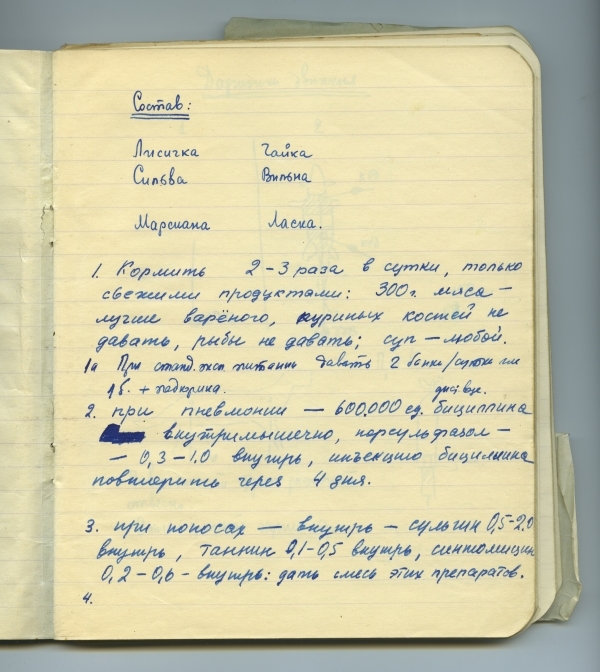 Состав:
Лисичка Чайка
Сильва Вильна
Марсиана Ласка.
1. Кормить 2-3 раза в сутки, только
свежими продуктами: 300 г. мяса -
лучше варёного, куриных костей не
давать, рыбы не давать; суп - любой.
1а При станд. питании давать 2 банки/сутки или
1 б. + подкормка.
2. при пневмонии - 600.000 ед. бициллина
внутримышечно, норсульфазол -
- 0,3-1.0 внутрь, инъекцию бициллина
повторить через 4 дня.
3. при поносах - внутрь - сульгин 0,5-2.0
внутрь, таннин 0,1-0,5 внутрь, синтомицин
0,2-0,6 - внутрь: дать смесь этих препаратов.
4.